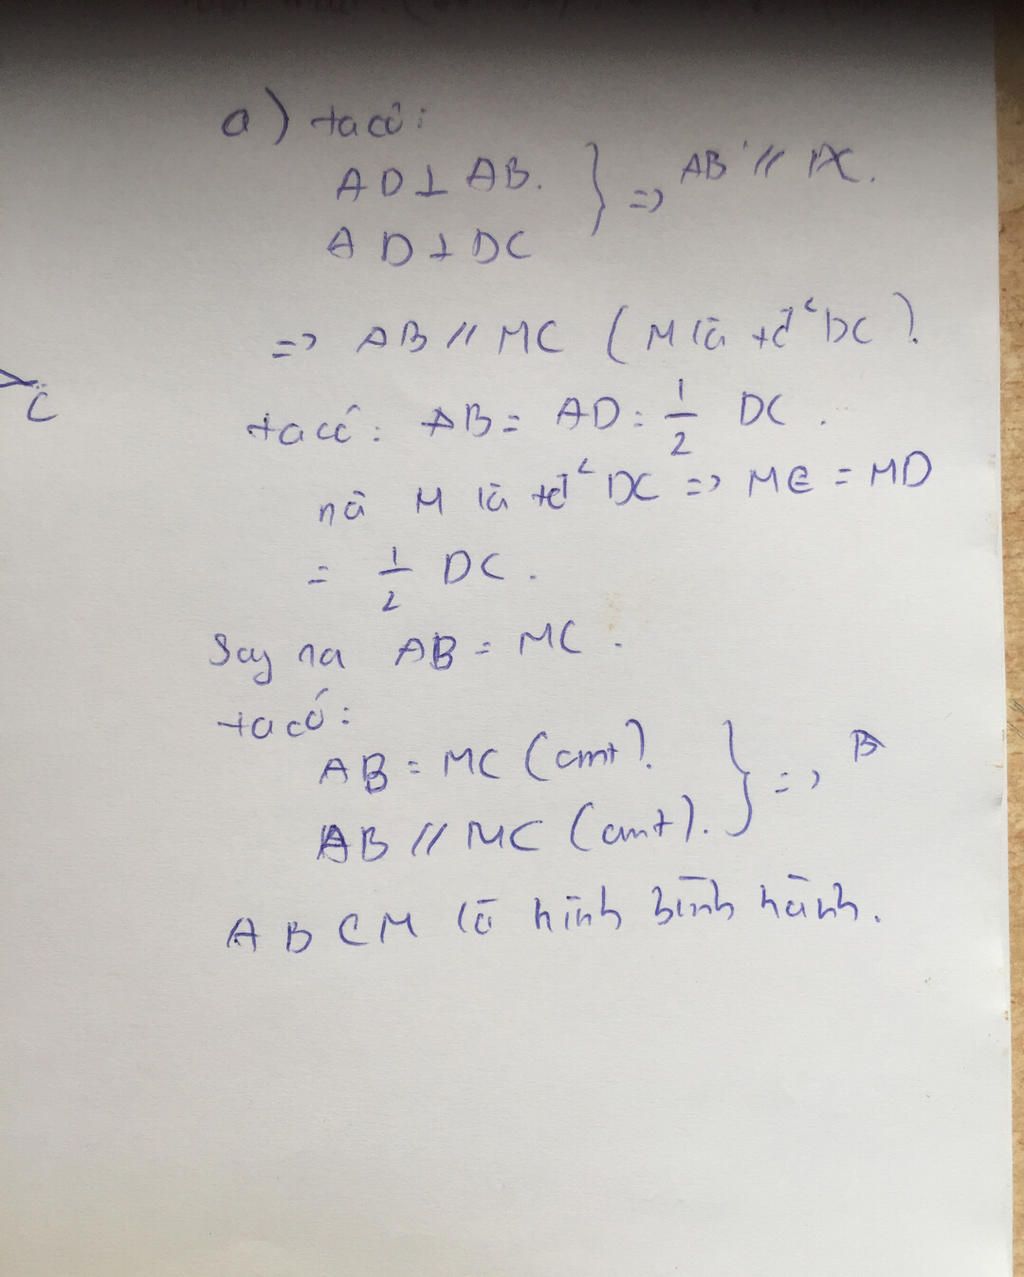 a) ta có:
AD ⊥ AB.
AD ⊥ DC
} => AB // DC.
=> AB // MC (M là tđ DC).
C
ta có: AB = AD = 1/2 DC.
mà M là tđ DC => MC = MD
= 1/2 DC.
Suy ra AB = MC.
ta có:
AB = MC (cmt).
AB // MC (cmt).
} =>
ABCM là hình bình hành.